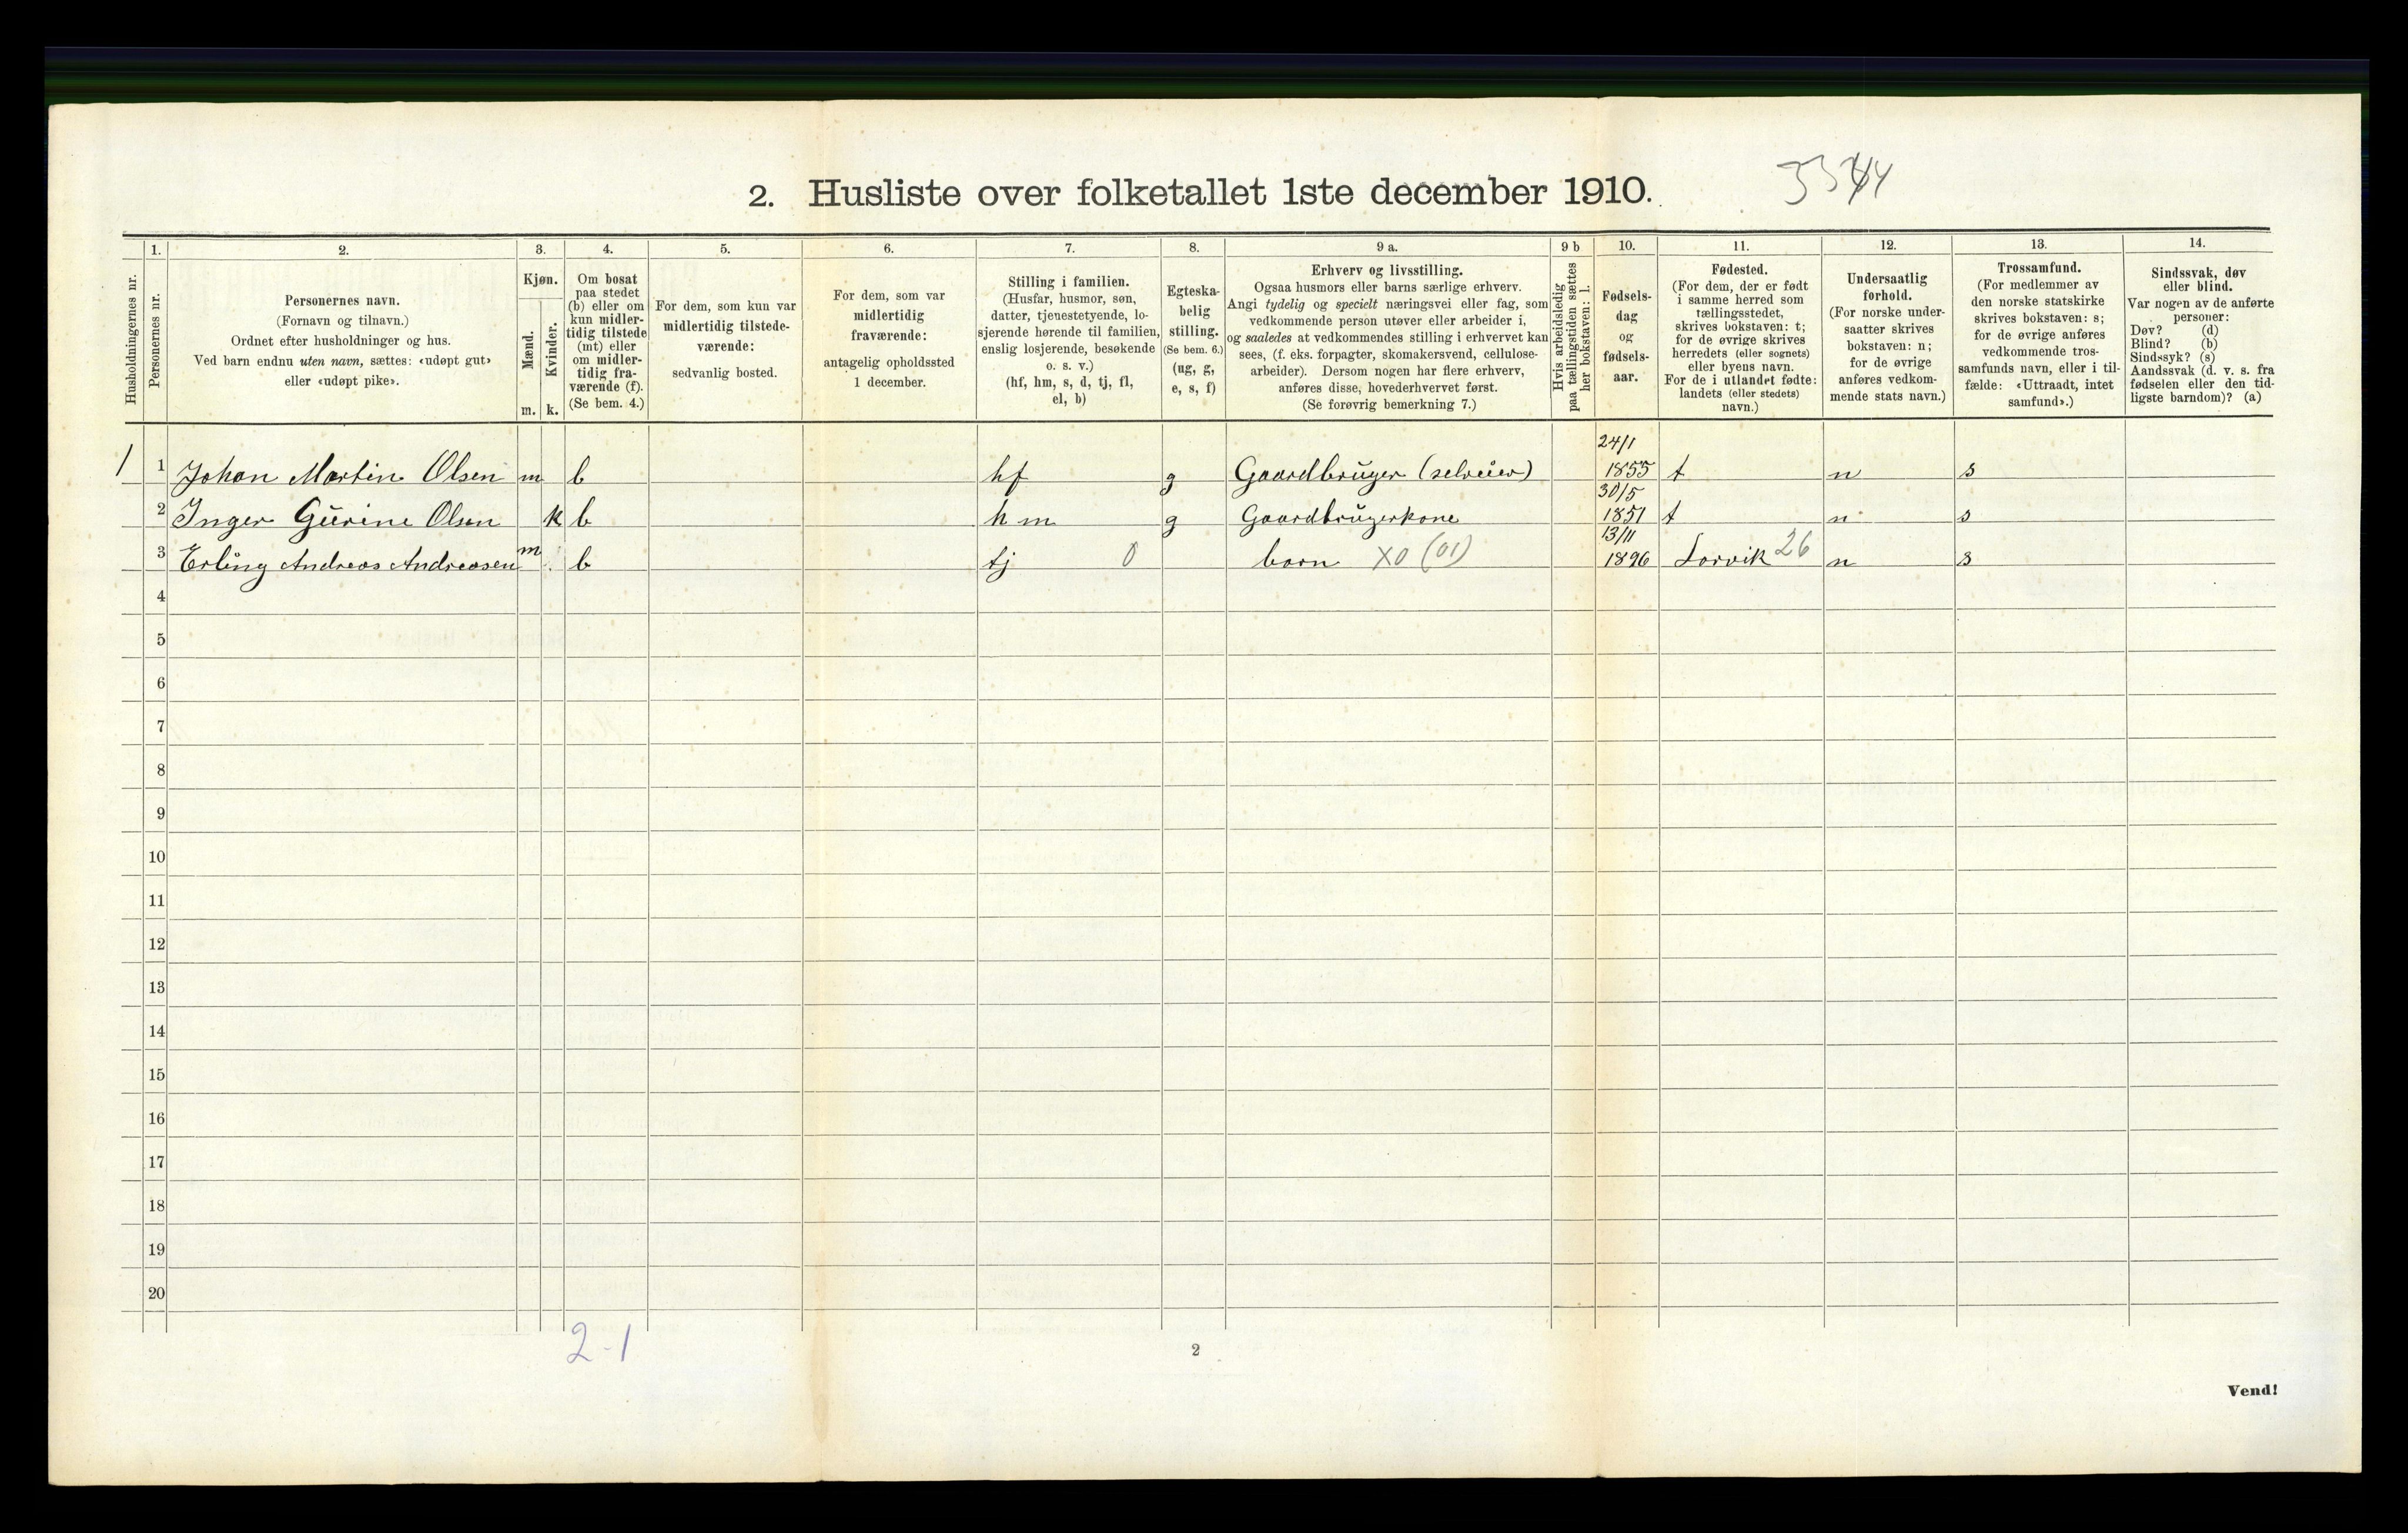 2. Husliste over folketallet 1ste december 1910.
1. 2. 3. 4. 5. 6. 7. 8. 9 a. 9 b 10. 11. 12. 13. 14.
Husholdningernes nr.
Personernes nr.
Personernes navn.
(Fornavn og tilnavn.)
Ordnet efter husholdninger og hus.
Ved barn endnu uten navn, sættes: «udøpt gut»
eller «udøpt pike».
Kjøn.
Mænd.
Kvinder.
m. k.
Om bosat
paa stedet
(b) eller om
kun midler-
tidig tilstede
(mt) eller
om midler-
tidig fra-
værende (f).
(Se bem. 4.)
For dem, som kun var
midlertidig tilstede-
værende:
sedvanlig bosted.
For dem, som var
midlertidig
fraværende:
antagelig opholdssted
1 december.
Stilling i familien.
(Husfar, husmor, søn,
datter, tjenestetyende, lo-
sjerende hørende til familien,
enslig losjerende, besøkende
o. s. v.)
(hf, hm, s, d, tj, fl,
el, b)
Egteska-
belig
stilling.
(Se bem. 6.)
(ug, g,
e, s, f)
Erhverv og livsstilling.
Ogsaa husmors eller barns særlige erhverv.
Angi tydelig og specielt næringsvei eller fag, som
vedkommende person utøver eller arbeider i,
og saaledes at vedkommendes stilling i erhvervet kan
sees, (f. eks. forpagter, skomakersvend, cellulose-
arbeider). Dersom nogen har flere erhverv,
anføres disse, hovederhvervet først.
(Se forøvrig bemerkning 7.)
Hvis arbeidsledig
paa tællingstiden sættes
her bokstaven: l.
Fødsels-
dag
og
fødsels-
aar.
Fødested.
(For dem, der er født
i samme herred som
tællingsstedet,
skrives bokstaven: t;
for de øvrige skrives
herredets (eller sognets)
eller byens navn.
For de i utlandet fødte:
landets (eller stedets)
navn.)
Undersaatlig
forhold.
(For norske under-
saatter skrives
bokstaven: n;
for de øvrige
anføres vedkom-
mende stats navn.)
Trossamfund.
(For medlemmer av
den norske statskirke
skrives bokstaven: s;
for de øvrige anføres
vedkommende tros-
samfunds navn, eller i til-
fælde: «Uttraadt, intet
samfund».)
Sindssvak, døv
eller blind.
Var nogen av de anførte
personer:
Døv? (d)
Blind? (b)
Sindssyk? (s)
Aandssvak (d. v. s. fra
fødselen eller den tid-
ligste barndom)? (a)
1 1 Johan Martin Olsen m b hf g Gaardbruger (selveier) 24/1 1855 t n s
2 Inger Gurine Olsen k b hm g Gaardbrugerkone 30/5 1851 t n s
3 Erling Andreas Andreasen m b tj 0 barn X0 (01) 13/11 1896 Larvik 26 n s
4
5
6
7
8
9
10
11
12
13
14
15
16
17
18
19
20
2-1
2
Vend!